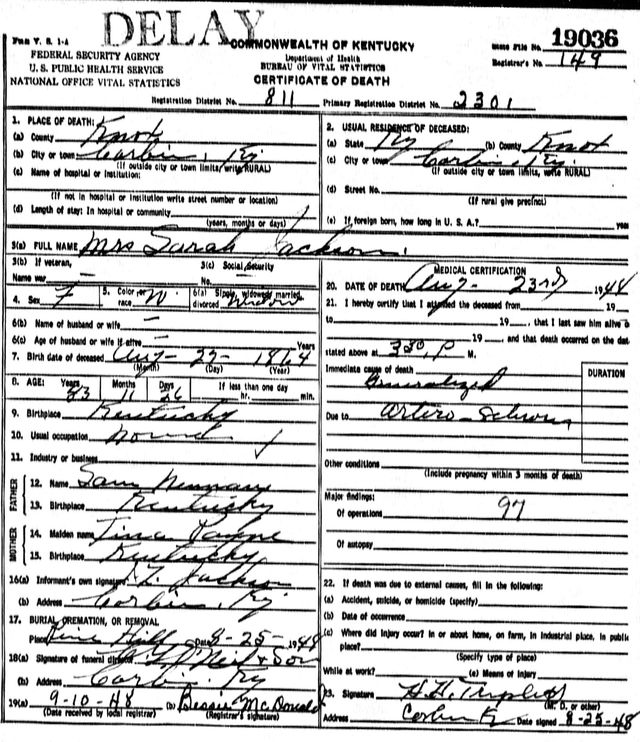 DELAY
FORM V. S. 1-A
FEDERAL SECURITY AGENCY
U. S. PUBLIC HEALTH SERVICE
NATIONAL OFFICE VITAL STATISTICS
COMMONWEALTH OF KENTUCKY
Department of Health
BUREAU OF VITAL STATISTICS
CERTIFICATE OF DEATH
File No. 19036
Registrar's No. 149
Registration District No. 811 Primary Registration District No. 2301
1. PLACE OF DEATH:
(a) County Knox
(b) City or town Corbin, Ky
(If outside city or town limits, write RURAL)
(c) Name of hospital or institution:
(If not in hospital or institution write street number or location)
(d) Length of stay: In hospital or community
(years, months or days)
2. USUAL RESIDENCE OF DECEASED:
(a) State Ky (b) County Knox
(c) City or town Corbin, Ky.
(If outside city or town limits, write RURAL)
(d) Street No.
(If rural give precinct)
(e) If foreign born, how long in U. S. A.?
3(a) FULL NAME Mrs Sarah Jackson
3(b) If veteran, 3(c) Social Security
Name war — No. —
4. Sex F 5. Color or race W 6(a) Single, widowed, married, divorced Widow
6(b) Name of husband or wife —
6(c) Age of husband or wife if alive —
7. Birth date of deceased Aug - 27 - 1864
(Month) (Day) (Year)
8. AGE: Years 83 Months 11 Days 26 If less than one day
hr. min.
9. Birthplace Kentucky
10. Usual occupation
11. Industry or business
FATHER
12. Name Sam
13. Birthplace Kentucky
MOTHER
14. Maiden name Tina Payne
15. Birthplace Kentucky
16(a) Informant's own signature Jackson
(b) Address Corbin, Ky
17. BURIAL, CREMATION, OR REMOVAL
Place Pine Hill Date 8-25-1948
18(a) Signature of funeral director O'Neil & Son
(b) Address Corbin, Ky
19(a) 9-10-48 (b) Bessie McDonald
(Date received by local registrar) (Registrar's signature)
MEDICAL CERTIFICATION
20. DATE OF DEATH Aug - 23rd 1948
21. I hereby certify that I attended the deceased from 19
to 19 , that I last saw him alive o
19 and that death occurred on the date
stated above at 3:30, P M.
Immediate cause of death DURATION
Generalized
Due to Artero-
Other conditions
(Include pregnancy within 3 months of death)
Major findings:
Of operations 97
Of autopsy
22. If death was due to external causes, fill in the following:
(a) Accident, suicide, or homicide (specify)
(b) Date of occurrence
(c) Where did injury occur? In or about home, on farm, in industrial place, in public
place?
(Specify type of place)
While at work? (e) Means of Injury
23. Signature H. H. Triplett
(M. D. or other)
Address Corbin K Date signed 8-25-48